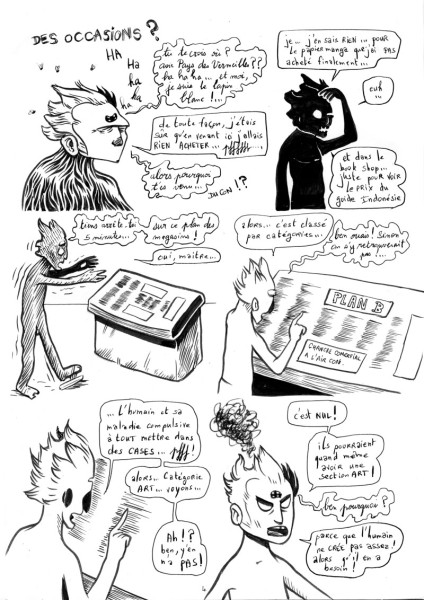 DES OCCASIONS?
HA
Ha
ha
ha
ha
tu te crois où?
aux Pays des Merveilles??
ha ha ha... et moi,
je suis le lapin
blanc!...
de toute façon, j'étais
sûr qu'en venant ici j'allais
RIEN ACHETER...
alors pourquoi
t'es venu...
DUCON!?
je... j'en sais RIEN... pour
le papier manga que j'ai PAS
acheté finalement...
euh
...
et dans le
book shop...
juste pour VOIR
le prix du
guide Indonésie
tiens arrête-toi
5 minutes...
sur ce plan des
magasins!
oui, maître...
alors... c'est classé
par catégories...
ben ouais! Sinon
on s'y retrouverait
pas!...
PLAN B
CENTRE COMMERCIAL
A L'AIR CON.
... L'humain et sa
maladie compulsive
à TOUT mettre dans
des CASES...
alors... Catégorie
ART... voyons...
Ah!?
ben, y'en
n'a PAS!
c'est NUL!
ils pourraient
quand même
avoir une
section ART!
ben pourquoi?
parce que l'humain
ne CRÉE pas assez!
alors qu'il en a
besoin!